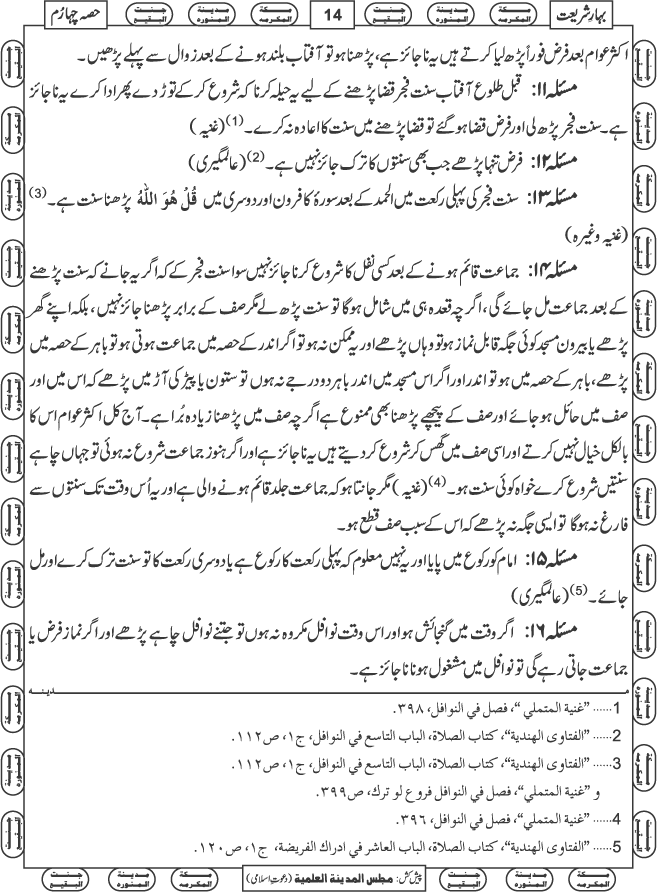 بہارِ شریعت
14
حصہ چہارم
اکثر عوام بعد فرض فوراً پڑھ لیا کرتے ہیں یہ ناجائز ہے، پڑھنا ہو تو آفتاب بلند ہونے کے بعد زوال سے پہلے پڑھیں۔
مسئلہ ۱۱: قبل طلوع آفتاب سنت فجر قضا پڑھنے کے لیے یہ حیلہ کرنا کہ شروع کر کے توڑ دے پھر ادا کرے یہ ناجائز
ہے۔ سنت فجر پڑھ لی اور فرض قضا ہو گئے تو قضا پڑھنے میں سنت کا اعادہ نہ کرے۔ (1) (غنیہ)
مسئلہ ۱۲: فرض تنہا پڑھے جب بھی سنتوں کا ترک جائز نہیں ہے۔ (2) (عالمگیری)
مسئلہ ۱۳: سنت فجر کی پہلی رکعت میں الحمد کے بعد سورۂ کافرون اور دوسری میں قُلْ هُوَ اللّٰهُ پڑھنا سنت ہے۔ (3)
(غنیہ وغیرہ)
مسئلہ ۱۴: جماعت قائم ہونے کے بعد کسی نفل کا شروع کرنا جائز نہیں سوا سنت فجر کے کہ اگر یہ جانے کہ سنت پڑھنے
کے بعد جماعت مل جائے گی، اگرچہ قعدہ ہی میں شامل ہوگا تو سنت پڑھ لے مگر صف کے برابر پڑھنا جائز نہیں، بلکہ اپنے گھر
پڑھے یا بیرون مسجد کوئی جگہ قابل نماز ہو تو وہاں پڑھے اور یہ ممکن نہ ہو تو اگر اندر کے حصہ میں جماعت ہوتی ہو تو باہر کے حصہ میں
پڑھے، باہر کے حصہ میں ہو تو اندر اور اگر اس مسجد میں اندر باہر دو درجے نہ ہوں تو ستون یا پیڑ کی آڑ میں پڑھے کہ اس میں اور
صف میں حائل ہو جائے اور صف کے پیچھے پڑھنا بھی ممنوع ہے اگرچہ صف میں پڑھنا زیادہ بُرا ہے۔ آج کل اکثر عوام اس کا
بالکل خیال نہیں کرتے اور اسی صف میں گھس کر شروع کر دیتے ہیں یہ ناجائز ہے اور اگر ہنوز جماعت شروع نہ ہوئی تو جہاں چاہے
سنتیں شروع کرے خواہ کوئی سنت ہو۔ (4) (غنیہ) مگر جانتا ہو کہ جماعت جلد قائم ہونے والی ہے اور یہ اُس وقت تک سنتوں سے
فارغ نہ ہوگا تو ایسی جگہ نہ پڑھے کہ اس کے سبب صف قطع ہو۔
مسئلہ ۱۵: امام کو رکوع میں پایا اور یہ نہیں معلوم کہ پہلی رکعت کا رکوع ہے یا دوسری رکعت کا تو سنت ترک کرے اور مل
جائے۔ (5) (عالمگیری)
مسئلہ ۱۶: اگر وقت میں گنجائش ہو اور اس وقت نوافل مکروہ نہ ہوں تو جتنے نوافل چاہے پڑھے اور اگر نماز فرض یا
جماعت جاتی رہے گی تو نوافل میں مشغول ہونا ناجائز ہے۔
مدینہ
1...... "غنية المتملي"، فصل في النوافل، ٣٩٨.
2...... "الفتاوى الهندية"، كتاب الصلاة، الباب التاسع في النوافل، ج١، ص١١٢.
3...... "الفتاوى الهندية"، كتاب الصلاة، الباب التاسع في النوافل، ج١، ص١١٢.
و "غنية المتملي"، فصل في النوافل فروع لو ترك، ص٣٩٩.
4...... "غنية المتملي"، فصل في النوافل، ٣٩٦.
5...... "الفتاوى الهندية"، كتاب الصلاة، الباب العاشر في ادراك الفريضة، ج١، ص١٢٠.
پیش کش: مجلس المدينة العلمية (دعوتِ اسلامی)